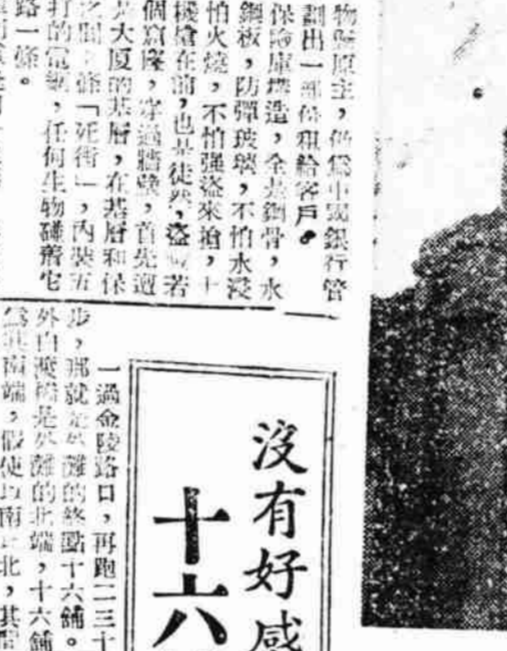 物歸原主，仍為中國銀行管
劃出一部份租給客戶。
保險庫建造，全是鋼骨，水
鋼板，防彈玻璃，不怕水浸
怕火燒，不怕强盜來搶，
機槍在前，也是徒然，盜若
個窟窿，穿過牆壁，首先遇
大厦的基層，在基層和保
之間一條「死街」，內裝
打的電網，任何生物碰着它
路一條。
沒有好感
十六
一過金陵路口，再跑二三十
步，那就是外灘的終點十六舖。
外白渡橋是外灘的北端，十六舖
為其南端，假使南北，其間